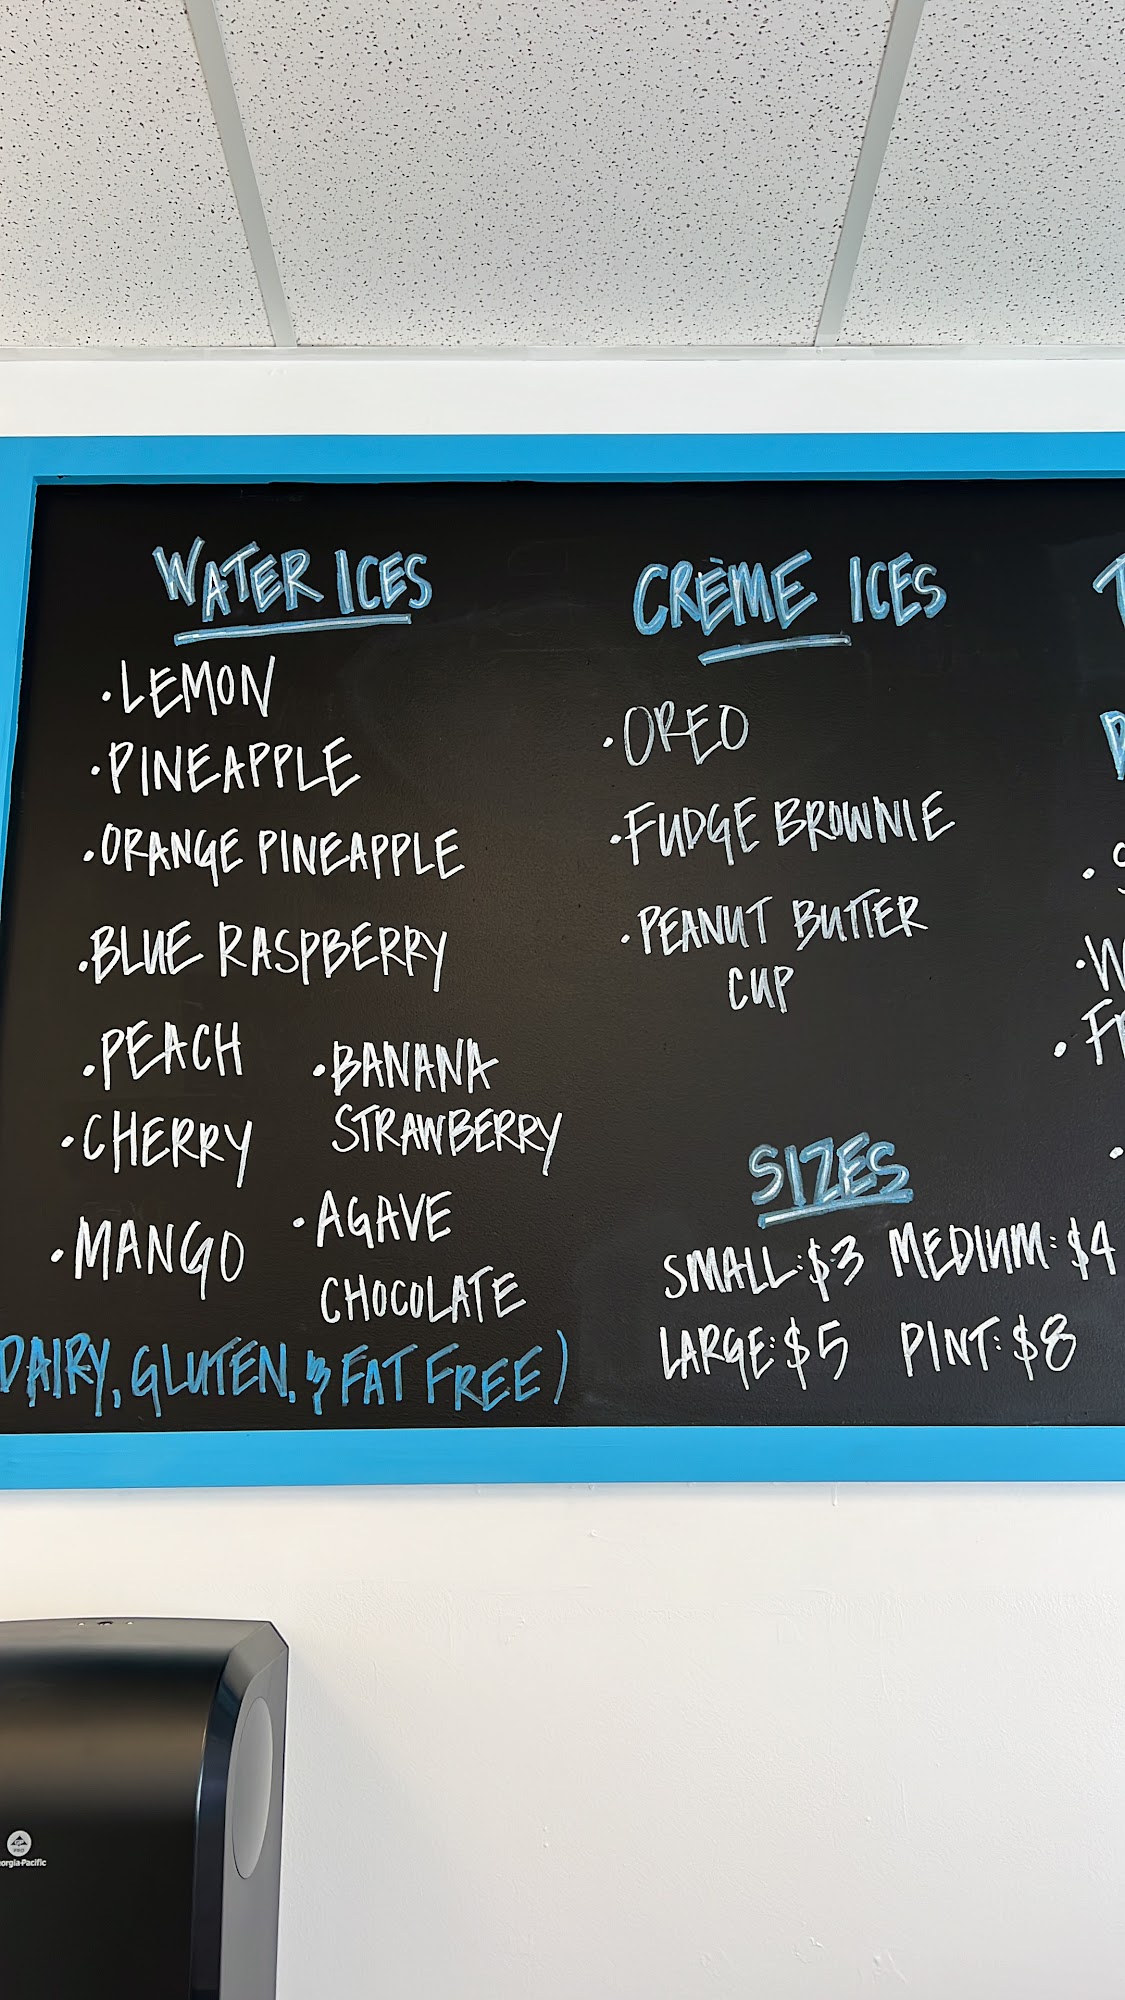 WATER ICES
• LEMON
• PINEAPPLE
• ORANGE PINEAPPLE
• BLUE RASPBERRY
• PEACH
• CHERRY
• MANGO
• BANANA
STRAWBERRY
• AGAVE
CHOCOLATE
DAIRY, GLUTEN, & FAT FREE)
CRÈME ICES
• OREO
• FUDGE BROWNIE
• PEANUT BUTTER
CUP
SIZES
SMALL: $3 MEDIUM: $4
LARGE: $5 PINT: $8
PRO